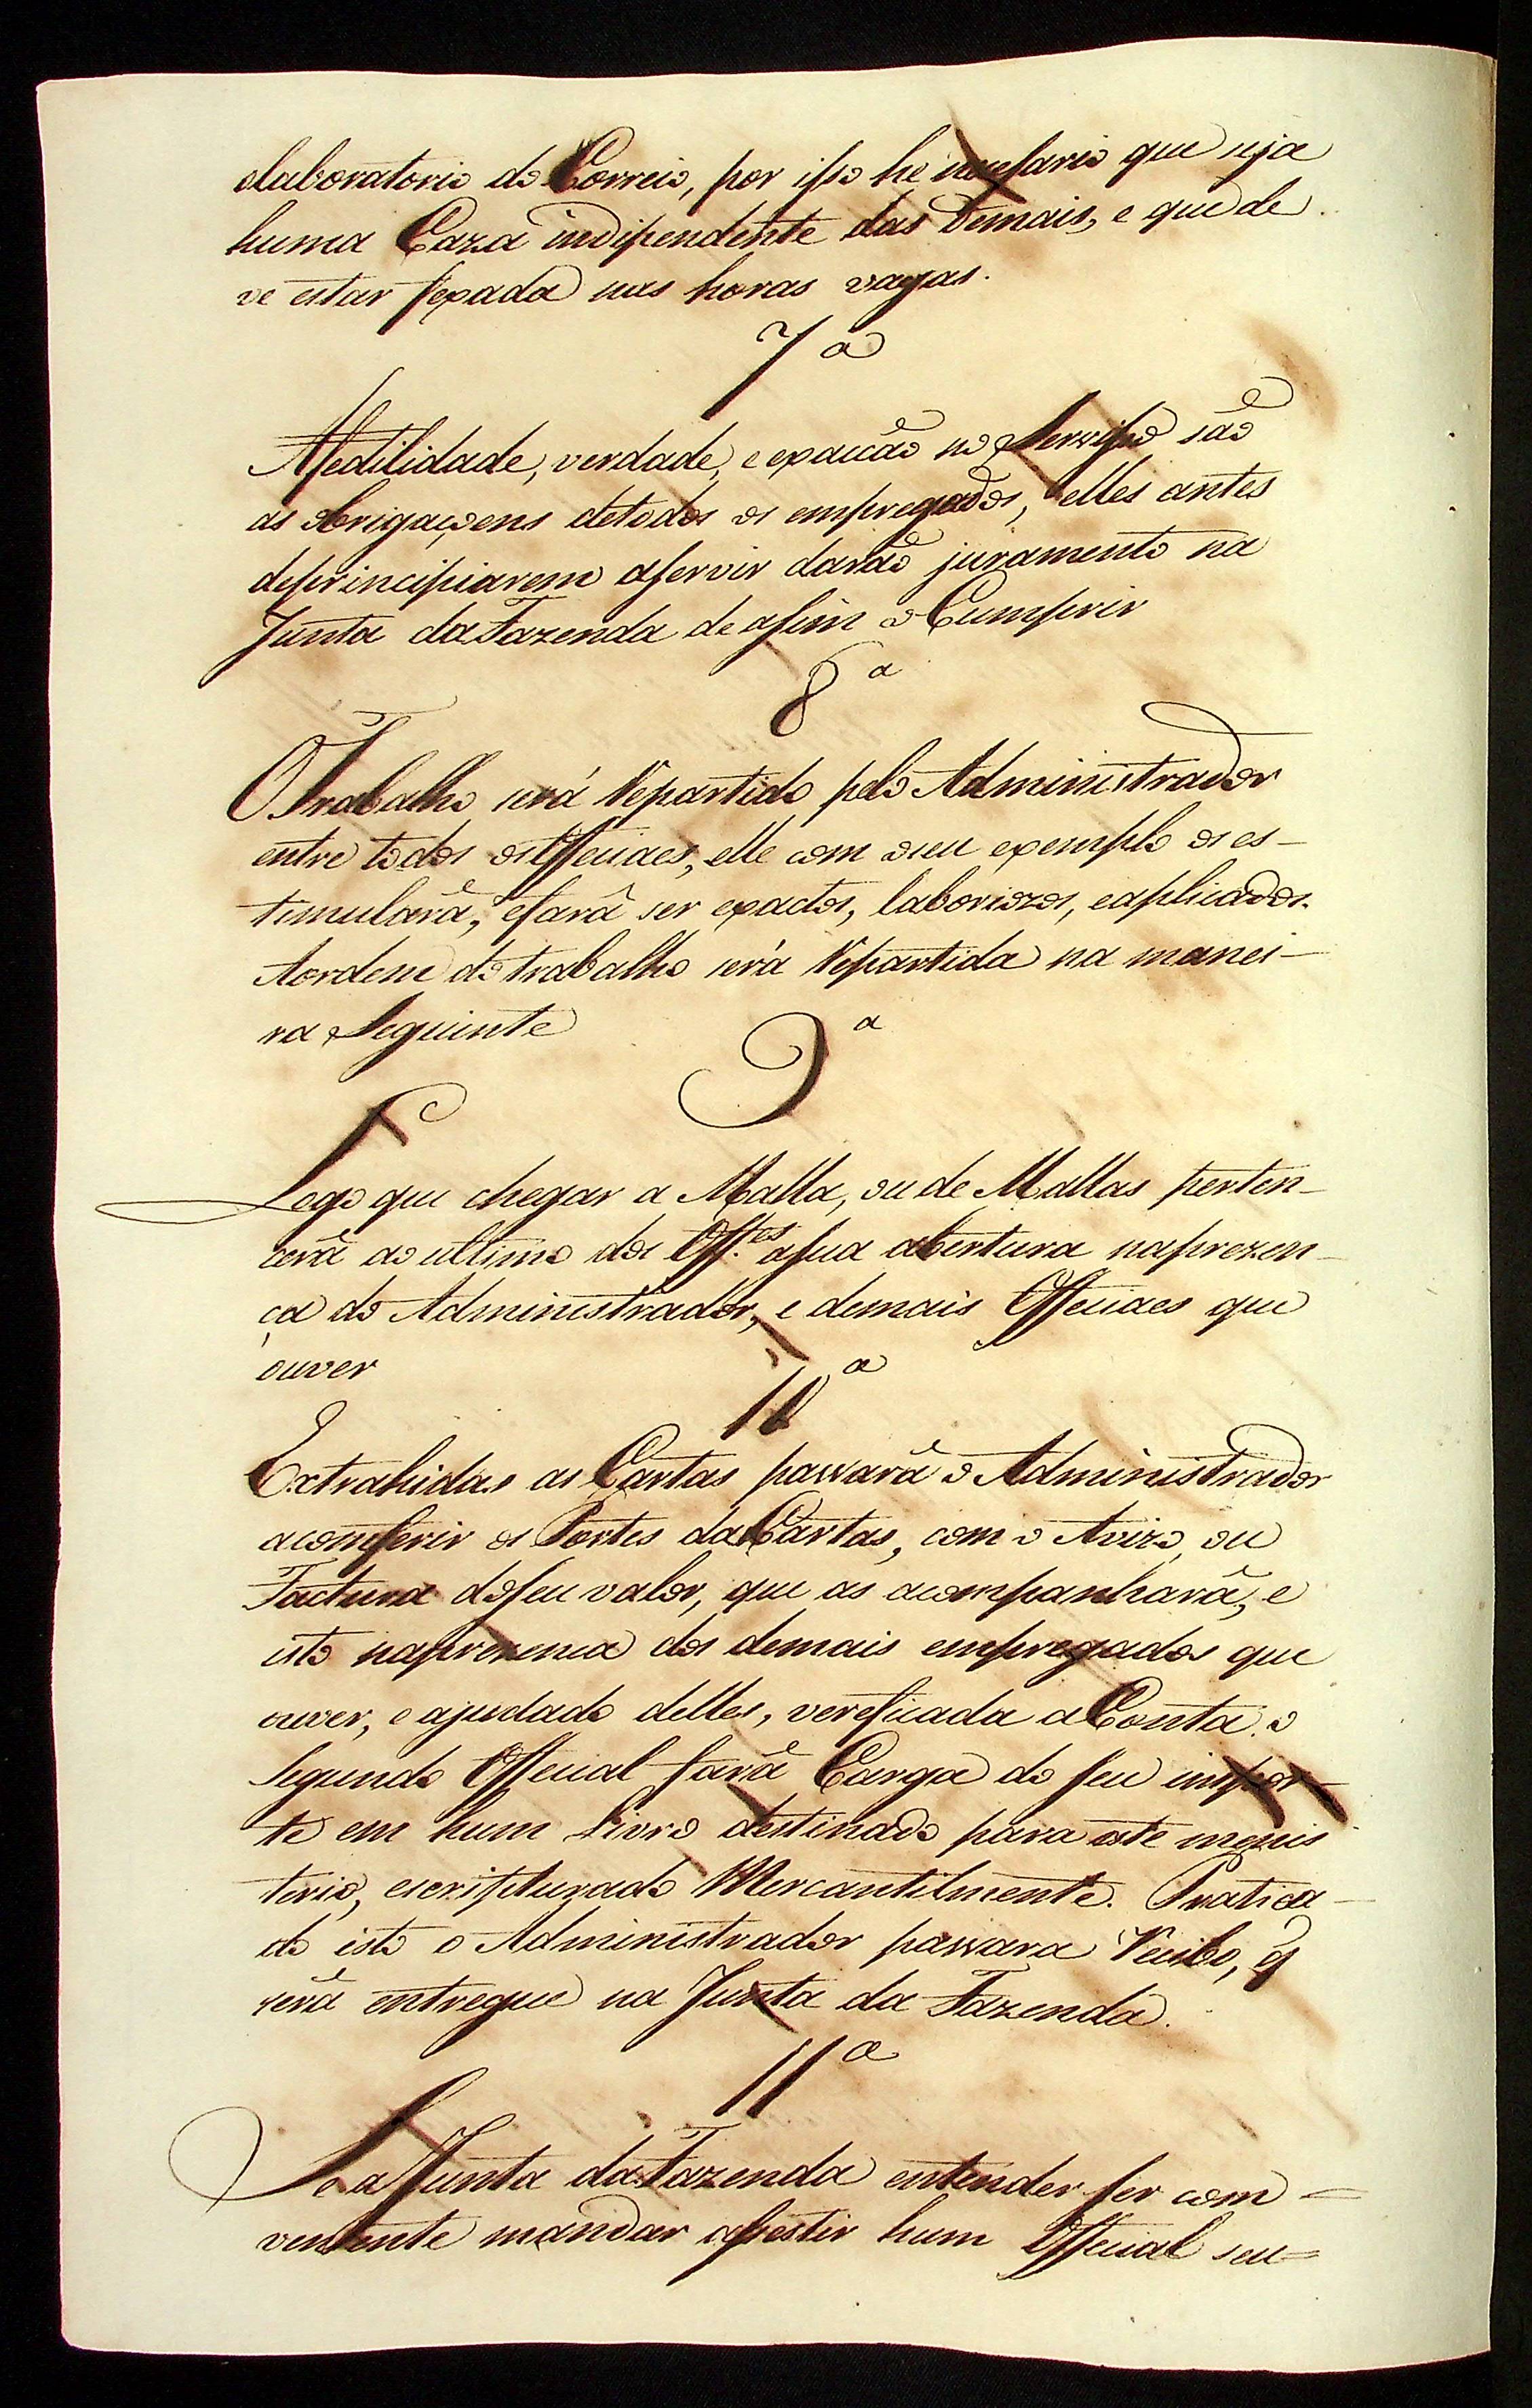 elaboratorio do Correio, por isso he necessario que seja
huma Caza indipendente das demais, e que de
ve estar fexada nas horas vagas.
7ª
Afedilidade, verdade, e exacção no Servisso são
as obrigaçoens detodos os empregados, elles antes
deprincipiarem aservir darão juramento na
Junta daFazenda de assim o Cumprir
8ª
OTrabalho será Repartido pelo Administrador
entre todos os Officiaes, elle com oseu exemplo os es-
timulará, efará ser exactos, laboriozos, eaplicados.
Aordem do trabalho será Repartida na manei-
ra Seguinte
9ª
Logo que chegar a Malla, ou de Mallas perten-
cerá ao ultimo dos Off.es asua abertura naprezen-
ça do Administrador, e demais Officiaes que
ouver
10ª
Extrahidas as Cartas passará o Administrador
aconferir os Portes daCartas, com o Avizo, ou
Factura doseu valor, que as acompanhará, e
isto naprezença dos demais empregados que
ouver, e ajudado delles, verificada aConta, o
Segundo Official fará Carga do seu impor-
te em hum Livro destinado para este menis
terio, escripturado Mercantilmente. Pratica-
do isto o Administrador passara Recibo, q
será entregue na Junta da Fazenda.
11ª
Se aJunta daFazenda entender ser com=
veniente mandar assestir hum Official seu=